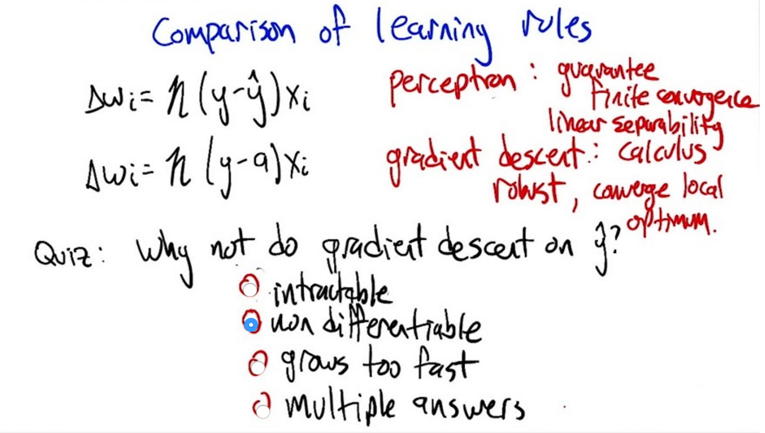 Comparison of learning rules
Δwi = η(y-ŷ)xi
perceptron: guarantee
finite convergence
linear separability
Δwi = η(y-a)xi
gradient descent: calculus
robust, converge local
optimum.
Quiz: Why not do gradient descent on ŷ?
intractable
non differentiable
grows too fast
multiple answers